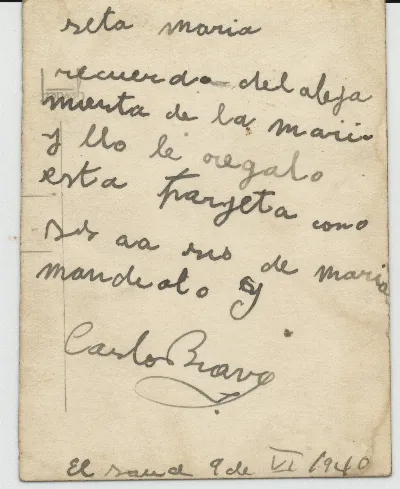 seta maria
recuerdo del aleja
mienta de la mari
y llo le regalo
esta tarjeta como
de maria
mandeolo y
Carlos Bravo
El 9 de VI 1940